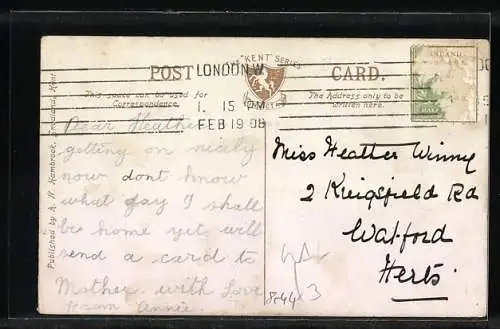 THE "KENT" SERIES
POST CARD.
LONDON. W
1. 15 PM
FEB 19 08
This space can be used for
Correspondence.
The Address only to be
written here.
INLAND
Published by A. N. Hambrook, Kent.
Dear Heather
getting on nicely
now dont know
what day I shall
be home yet will
send a card to
Mother with Love
from Annie
Miss Heather Winny
2 Kingsfield Rd
Watford
Herts.
3